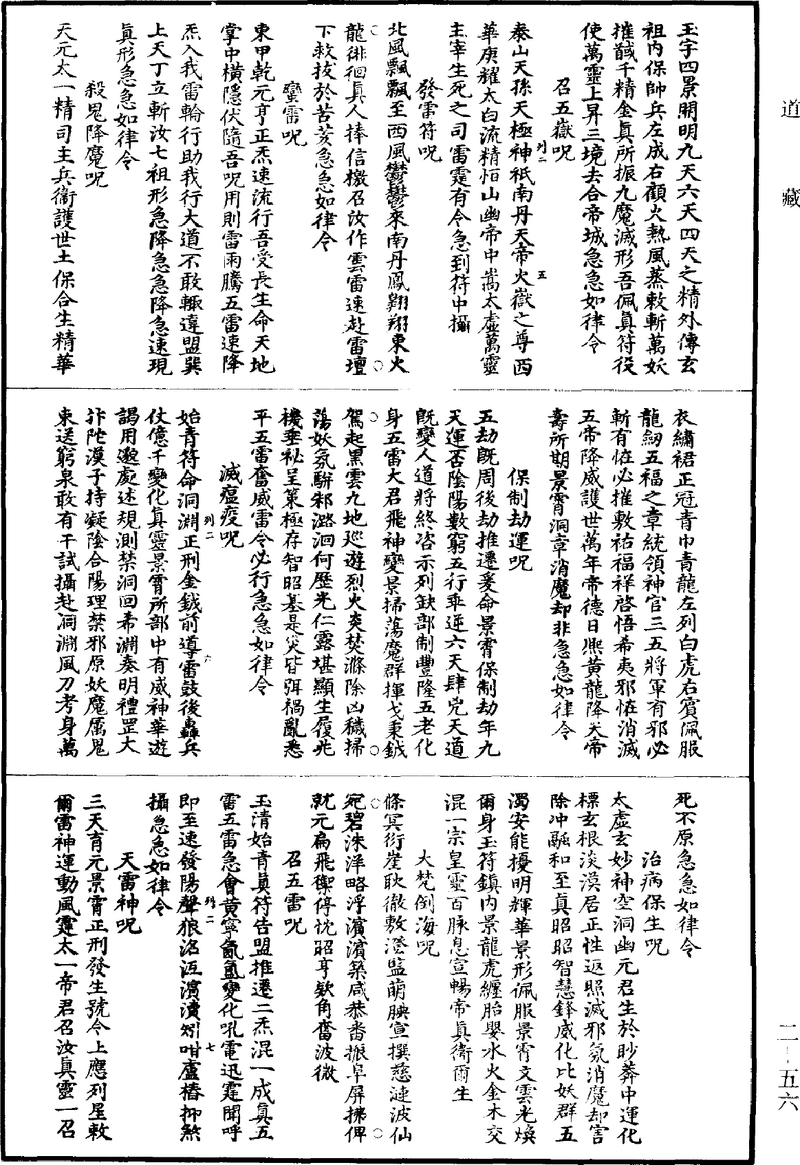 道藏
玉字四景開明九天六天四天之精外傳玄
祖內保帥兵左成右顧火熱風蒸敕斬萬妖
摧馘千精金真所振九魔滅形吾佩真符役
使萬靈上昇三境去合帝城急急如律令
召五嶽呪
泰山天孫天極神祇南丹天帝火嶽之尊西
華庚耀太白流精恒山幽帝中嵩太虛萬靈
主宰生死之司雷霆有令急到符中攝
發雷符呪
北風飄飄至西風鬱鬱來南丹鳳翱翔東火
龍徘徊真人捧信檄召汝作雲雷速赴雷壇
下救拔於苦茭急急如律令
蠻雷呪
東甲乾元亨正炁速流行吾受長生命天地
掌中橫隱伏隨吾呪用則雷雨騰五雷速降
炁入我雷輪行助我行大道不敢輒違盟巽
上天丁立斬汝七祖形急降急急降急速現
真形急急如律令
殺鬼降魔呪
天元太一精司主兵衞護世土保合生精華
衣繡裙正冠青巾青龍左列白虎右賓佩服
龍紉五福之章統領神官三五將軍有邪必
斬有恠必摧敷祐福祥啓悟希夷邪恠消滅
五帝降威護世萬年帝德日熙黃龍降天帝
壽所期景霄洞章消魔却非急急如律令
保制劫運呪
五劫既周後劫推遷爰命景霄保制劫年九
天運否陰陽數窮五行乖逆六天肆兇天道
既變人道將終咨示列缺部制豐隆五老化
身五雷大君飛神變景掃蕩魔群揮戈秉鉞
駕起黑雲九地巡遊烈火炎焚滌除凶穢掃
蕩妖氛駢邪潞洄何歷光仁露堪顯生履兆
機垂祕呈策極存智昭基是災皆弭禍亂悉
平五雷奮威雷令必行急急如律令
滅瘟疫呪
始青符命洞淵正刑金鉞前導雷鼓後轟兵
仗億千變化真靈景霄所部中有威神華遊
謁用邀處述規測禁洞回希淵奏明禮罡大
汴陀漠子持凝陰合陽理禁邪原妖魔厲鬼
束送窮泉敢有干試攝赴洞淵風刀考身萬
死不原急急如律令
治病保生呪
太虛玄妙神空洞幽元君生於眇莽中運化
標玄根淡漠居正性返照滅邪氛消魔却害
除冲融和至真昭昭智慧鋒威化比妖群五
濁安能擾明輝華景形佩服景霄文雲光煥
爾身玉符鎮內景龍虎纏胎嬰水火金木交
混一宗皇靈百脉息宣暢帝真衛爾生
大梵倒海呪
條冥衍崖耿徹敷澄監萌腴宣撰慈連波仙
宛碧洙洋略浮濱濱築咸恭番振阜屏攡俾
就元扁飛禦停枕昭亨欵角奮波微
召五雷呪
玉清始青真符告盟推遷二炁混一成真五
雷五雷急會黃寧氤氳變化吼電迅霆聞呼
即至速發陽聲狼洛沍濱瀆矧喑盧椿抑煞
攝急急如律令
天雷神呪
三天育元景霄正刑發生號令上應列星敕
爾雷神運動風霆太一帝君召汝真靈一召
二-五六